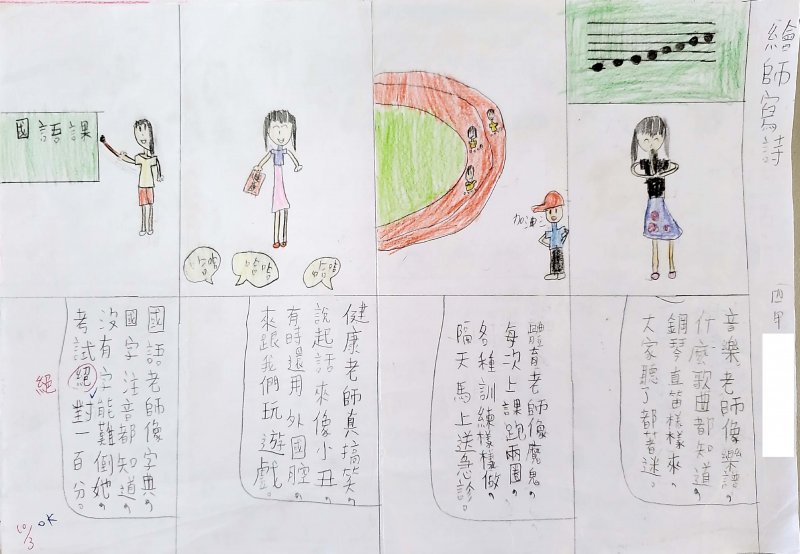 繪師寫詩
四甲
音樂老師像樂譜，
什麼歌曲都知道，
鋼琴直笛樣樣來，
大家聽了都著迷。
加油
體育老師像魔鬼，
每次上課跑兩圈，
各種訓練樣樣做，
隔天馬上送急診。
健康老師真搞笑，
說起話來像小丑，
有時還用外國腔，
來跟我們玩遊戲。
國語課
國語老師像字典，
國字注音都知道，
沒有它能難倒她，
考試絕對一百分。
絕
OK
10/3